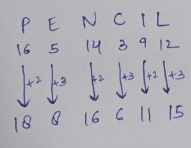 P E N C I L
16 5 14 3 9 12
+2 +3 +2 +3 +2 +3
18 8 16 6 11 15